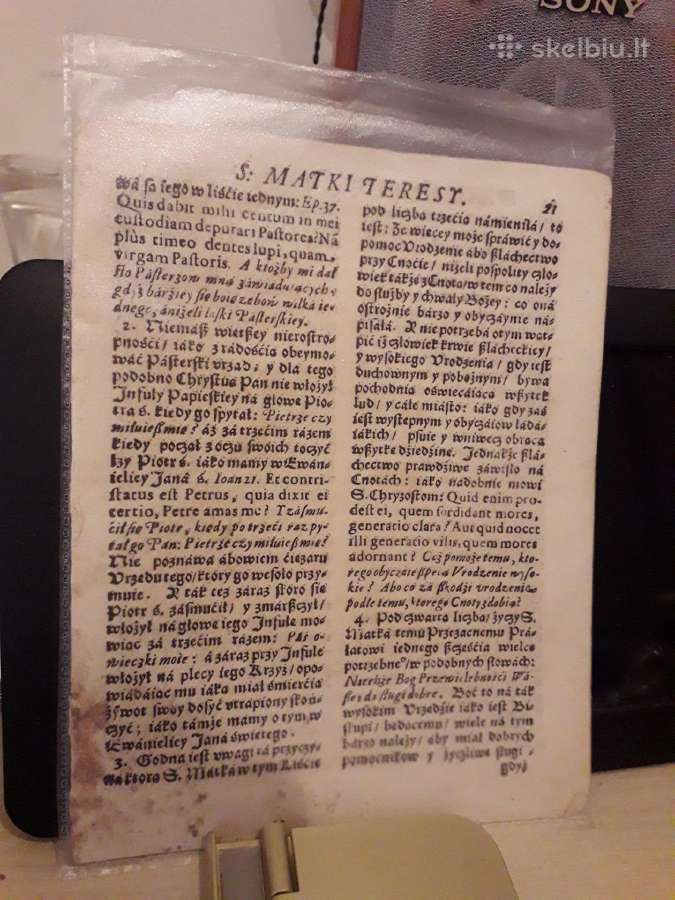 SONY
skelbiu.lt
S: MATKI TERESY.
21
wa sa iego w liśćie iednym: Ep. 37.
Quis dabit mihi centum in mei
custodiam depurari Pastores? Nã
plùs timeo dentes lupi, quam
virgam Pastoris. A ktożby mi dał
sto Pásterzow mną záwiáduiących,
gdyż bárźiey się boię zębow wilká ie-
dnego, ániżeli laski Pásterskiey.
2. Niemáß więtßey nierostro-
pnośći / iáko z rádośćią obeymo-
wáć Pásterski vrząd; y dla tego
podobno Chrystus Pan nie włożył
Infuły Papieskiey ná głowę Pio-
trá ś. kiedy go spytał: Pietrze czy
miłuießmię? áż zá trzećim rázem
kiedy począł z oczu swoich toczyć
łzy Piotr ś. iáko mamy w Ewán-
ieliey Janá ś. Ioan 21. Et contri-
status est Petrus, quia dixit ei
tertio, Petre amas me? Zásmu-
ćił się Piotr, kiedy po trzeći raz py-
tał go Pan: Pietrze czy miłuieß mię?
Nie poznawa ábowiem ćiężaru
Vrzędu tego / ktory go wesoło przy-
muie. A ták też záraz skoro się
Piotr ś. zásmućił / y zmárßczył /
włożył ná głowę iego Infułę mo-
wiąc zá trzećim rázem: Páś o-
wieczki moie: á záraz przy Infule
włożył ná plecy iego Krzyż / opo-
wiádáiąc mu iáko miał śmierćią
żywot swoy dosyć vtrapiony skoń-
czyć; iáko támże mamy o tym w
Ewánieliey Janá świętego.
3. Godna iest vwagi tá przyczy-
ná ktorą S. Mátká w tym Liśćie
pod liczbą trzećią námieniłá / to
iest: Że więcey może spráwić y do-
pomoc Vrodzenie ábo ßláchectwo
przy Cnoćie / niżeli pospolity czło-
wiek tákże z Cnotą / w tem co należy
do służby y chwały Bożey: co oná
ostrożnie bárzo y obyczáynie ná-
pisáłá. A nie potrzebá o tym wąt-
pić iż człowiek krwie ßlácheckiey /
y wysokiego Vrodzenia / gdy iest
duchownym y pobożnym / bywa
pochodnia oświecáiąca wßytek
lud / y cáłe miásto: iáko gdy záś
iest występnym y obyczáiow ládá-
iákich / psuie y wniwecz obraca
wßytkę dźiedźinę. Jednákże ßlá-
chectwo prawdźiwe záwisło ná
Cnotách: iáko nadobnie mowi
S. Chryzostom: Quid enim pro-
dest ei, quem sordidant mores,
generatio clara? Aut quid nocet
illi generatio vilis, quem mores
adornant? Coż pomoże temu, kto-
rego obyczáie ßpecą Vrodzenie wyso-
kie? Abo co zá ßkodzi vrodzenie
podłe temu, ktorego Cnoty zdobią?
4. Pod czwartą liczbą / życzy S.
Mátká temu Przezacnemu Prá-
łatowi iednego ßczęśćia wielce
potrzebne° / w podobnych słowach:
Niechże Bog Przewielebnośći Wá-
ßey da sługi dobre. Boć to ná ták
wysokim Vrzędzie iáko iest Bi-
skupi / będącemu / wiele ná tym
bárzo należy / áby miał dobrych
pomocnikow y życzliwe sługi,
gdyż